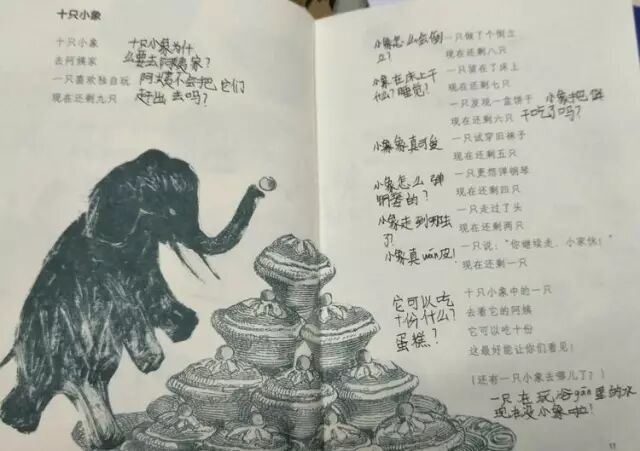 十只小象
十只小象
去阿姨家
一只喜欢独自玩
现在还剩九只
十只小象为什
么要去阿姨家?
阿姨不会把,它们
赶出去吗?
小象怎么会倒
立?
一只做了个倒立
现在还剩八只
小象在床上干
什么?睡觉?
一只留在了床上
现在还剩七只
一只发现一盒饼干
现在还剩六只
小象把饼
干吃了吗?
一只试穿旧袜子
现在还剩五只
小象象真可爱
一只更想弹钢琴
现在还剩四只
小象怎么弹
钢琴的?
一只走过了头
现在还剩两只
小象走到哪去
了?
一只说:“你继续走,小家伙!”
现在还剩一只
小象真wán皮!
十只小象中的一只
去看它的阿姨
它可以吃十份
这最好能让你们看见!
它可以吃
十份什么?
蛋糕?
(还有一只小象去哪儿了?)
一只在玩浴gāng里的水
现在没小象啦!